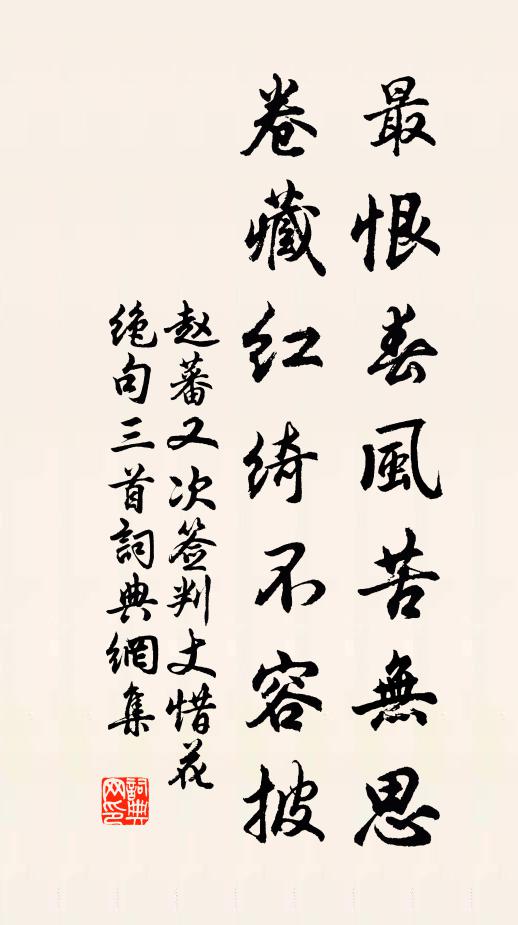 最恨春風苦無思
卷藏紅綺不容披
赵蕃又次签判丈惜花
绝句三首詞典網集
詞典網印